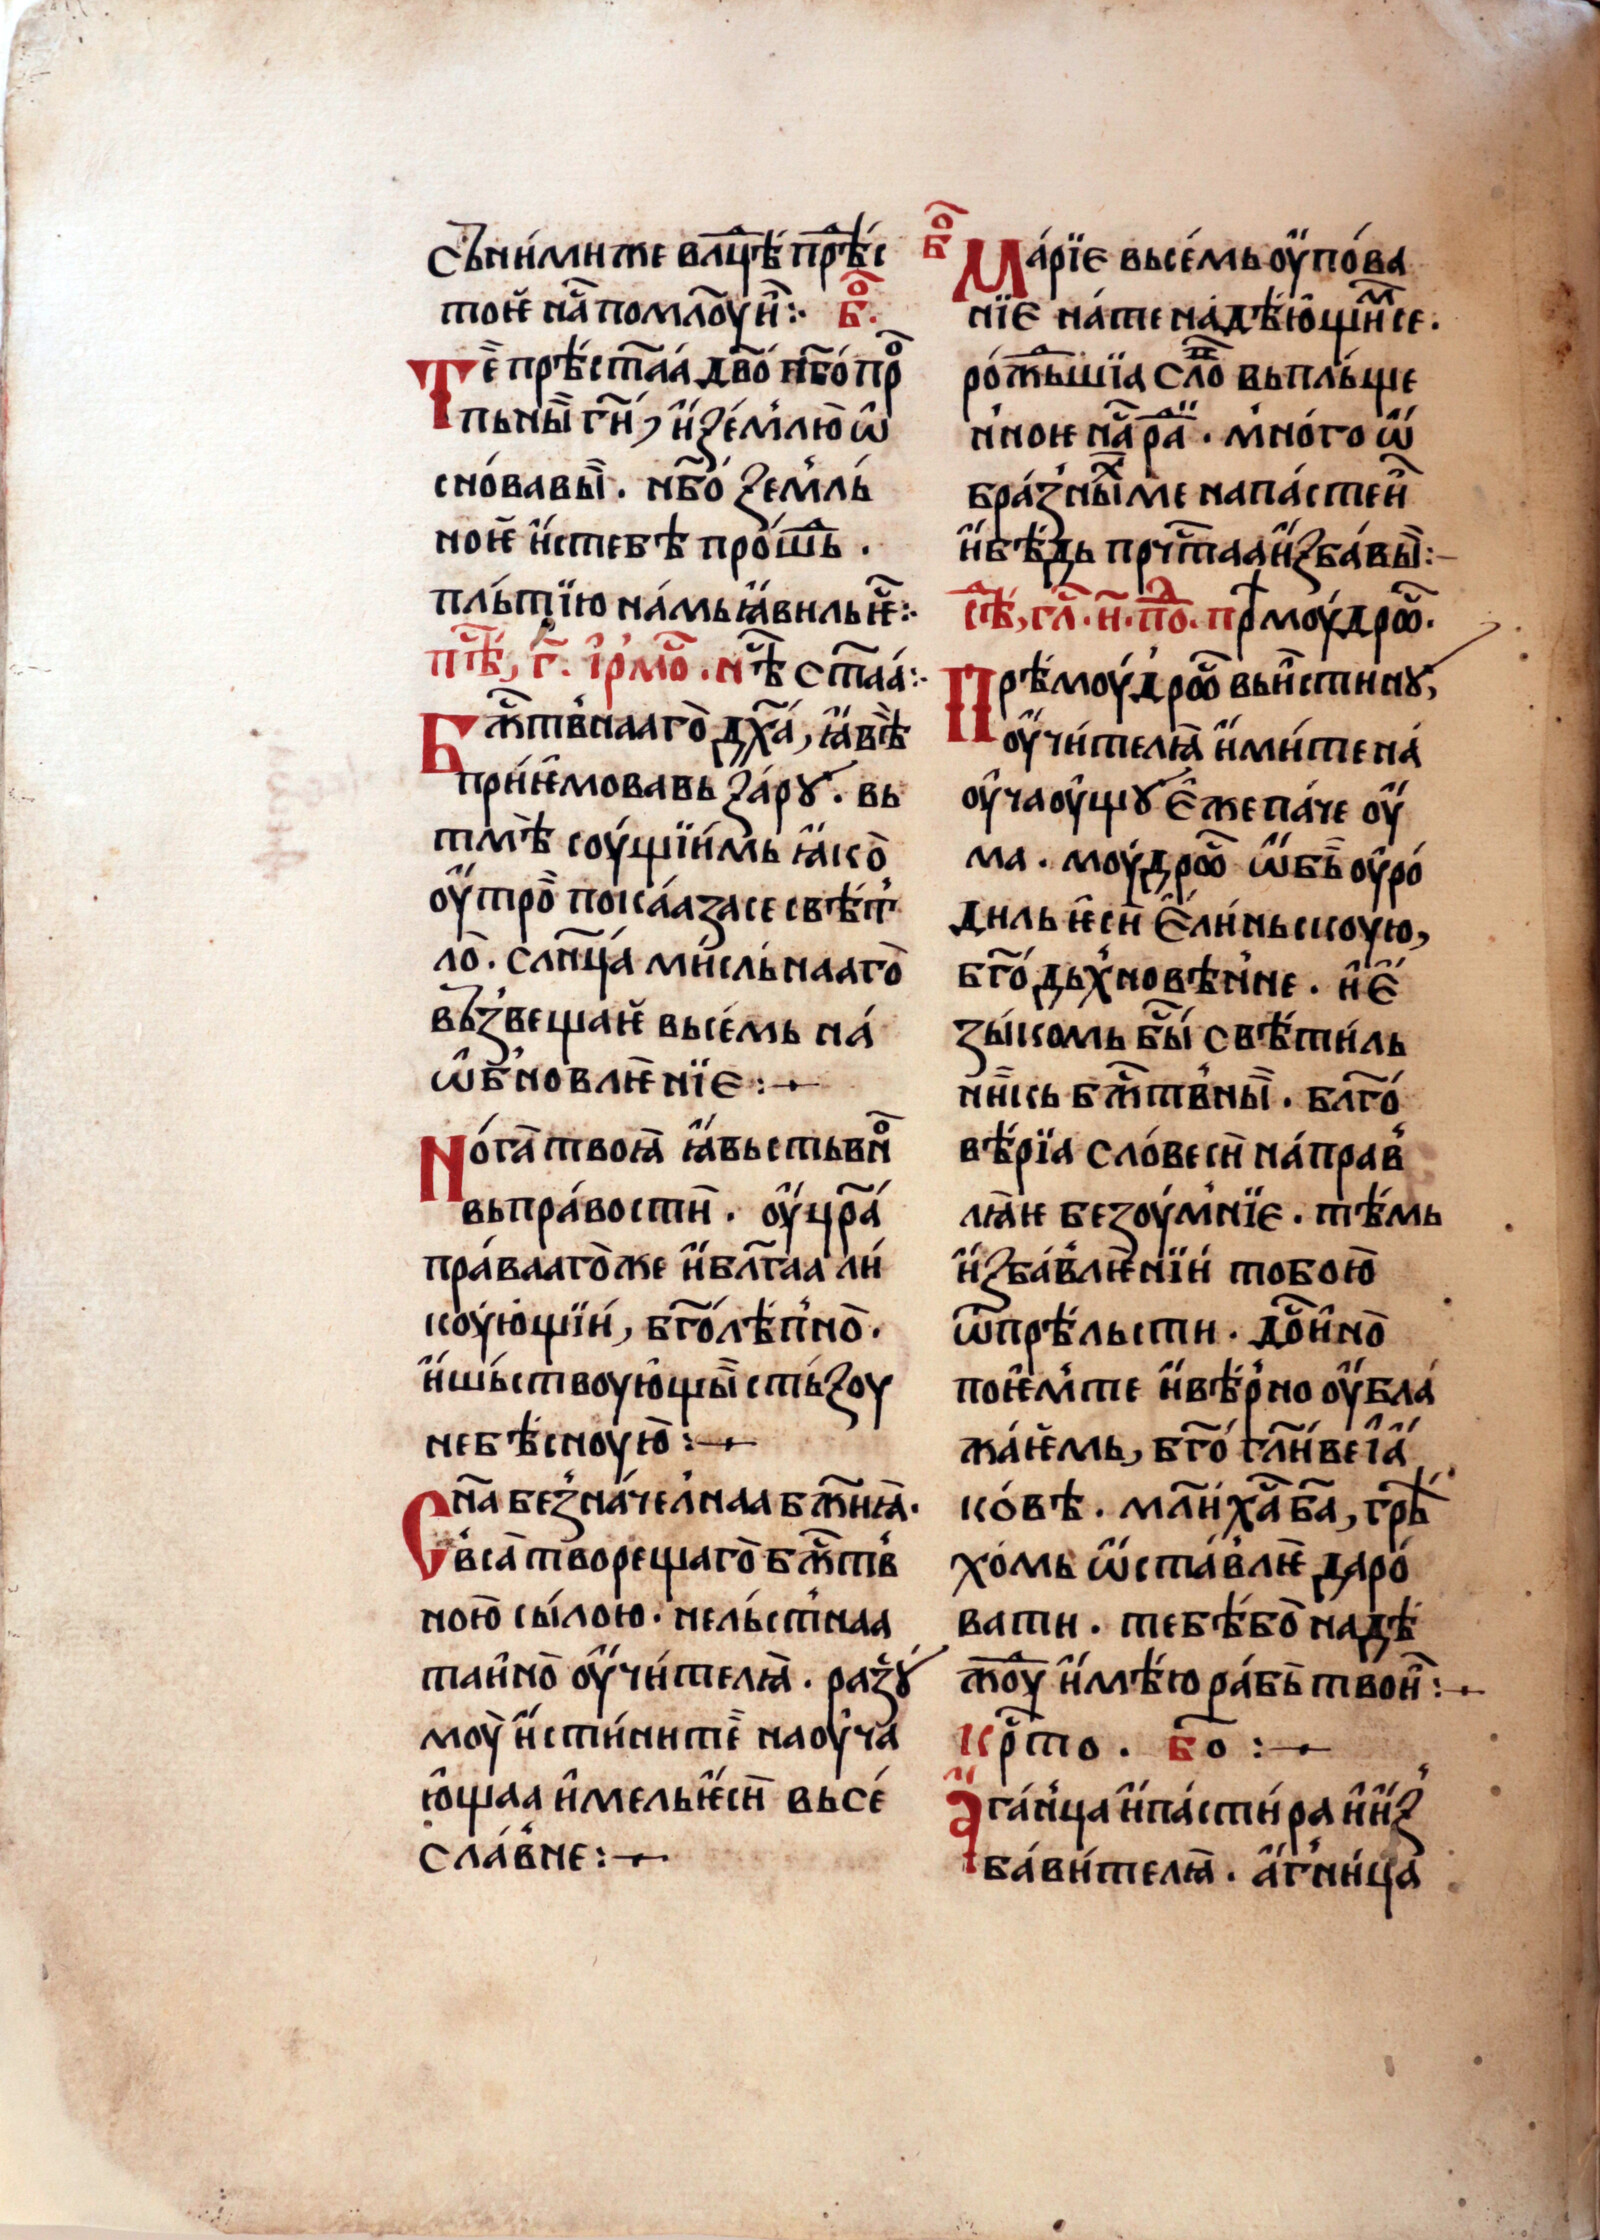 съни́миже влⷣцѣ прѣ́с
тоѥ на̑помлⷭ҇оуи҆:· бо҃.
Те҃прѣ́ст҃аа́ дв҃о нб҃опро
пьны҃ гн҃и, и҆зе́млю̀ ѡ҆
сно́вавы҃. нб҃о землꙗ́
ноѥ и҆стебѣ про́шь.
плъ́тїю на́мь ꙗ҆вильѥ҃:·
пѣ́с, г҃. і҆рмо҃. нѣ́ ст҃аа́:·
Бж҃ствнаа го̀ дх҃а́, ꙗ҆вѣ
прїѥ́мовавь за́рꙋ. вь
тмѣ̀ соу́щїи́мь ꙗ҆ко̀
оу҆тро҃ пока́азасе свѣ́т
ло̀. слн҃ца́ ми́сльнааго̀
въ́звещаѥ҆ вьсе́мь на́
ѡ҆бновлѥнїѥ:→
Но́га҃ твоꙗ̀ ꙗ҆вьстьвно
вьпра́вости҃. оу҆ цр҃а́
пра́вааго̀же и҆бл҃гаа ли́
коую́щїи́, бг҃олѣ́пно̀.
и҆шьствоую҆щы҃ стьзоу
неб ѣ́сноую̀:→
Сн҃а без́наче́лнаа бж҃иꙗ̀.
в́са҃ творещаго̀ бж҃ств
ною̀ сы́лою. нельстнаа
таи́но̀ оу҆чи́телꙗ̀. разꙋ́
моу̀ и҆сти́ните҃ наоу҆ча
ю҆щаа и҆мельѥ҆си҃ вьсе́
сла́вне:→
бо҃
Ма́рїє вьсе́мь оу҆по́ва
нїє на́ше надѣ́ю҆щи҃мсе.
ро́ждьшїа сло҃ вьплъ́ще
нное на̑ра҃. мно́го ѡ҆
бра́зны҃х ме напа́стеи҃
и҆бѣ́дь прчⷭ҇таа и҆зба́вы҃:–
сѣ́, гл҃. и҃. по҃. прмоу́дрѡ҃.
Прѣмоу́дрѡ҃ вьи҆стину,
оу҆чи́телꙗ̀ и҆ми́те на́
оу҆чаоу҆щꙋ є҆же па́че оу҆
ма. моу́дрѡ҃ ѡ҆бь҃ оу҆ро́
диль ѥ҆си҃ є҆ли́ньскоую,
бг҃о дьхновѣ́нне. и҆ є҆
зы́комь бы҃ свѣти́ль
ни҃кь бж҃ствны҃. бл҃го́
вѣ́рїа сло́веси҃ на́прав
лꙗ̀ѥ безоу́мнїє. тѣ́мь
и҆зба́влѥнїи́ тобою̀
ѿпрѣльсти. дⷭ҇ои҆но̀
поѥ҆мте и҆вѣ́рно оу҆бла́
жаѥ҆мь, бг҃о гл҃иве і҆ꙗ́
ко́вѣ. мл҃и х҃а ба҃, грѣ
хо́мь ѡ҆ста́влѥ даро́
вати. тебѣбо̀ надѣ
ждоу и҆мѣ́ю ра́бь твои҃:→
кр҃сто. бо:→
А҆га́нца и҆па́сти́ра и҆и҆з
ба́ви́телꙗ̀. а҆гни́ца